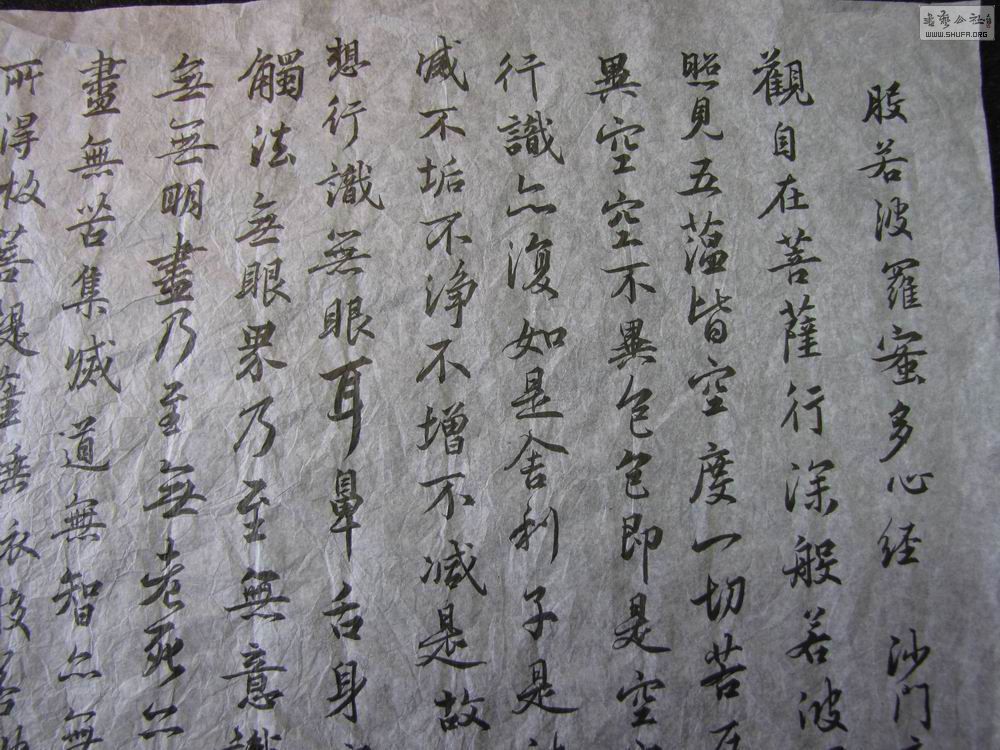 般若波羅蜜多心经 沙门
觀自在菩薩行深般若波
照見五蕴皆空度一切苦
異空空不異色色即是空
行識亦復如是舍利子是
滅不垢不浄不增不减是故
想行識無眼耳鼻舌身
觸法無眼界乃至無意識
無無明盡乃至無老死亦
盡無苦集滅道無智亦無
所得故菩提薩埵依
書藝公社
WWW.SHUFA.ORG